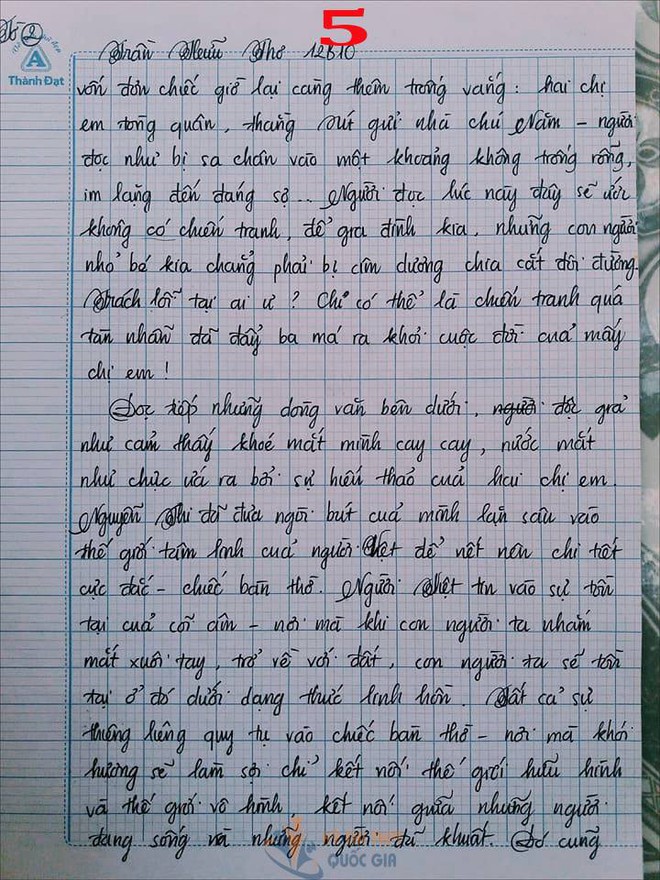 5
Tờ 2
Thành Đạt
Trần Hữu Thơ 12B10
vốn đơn chiếc giờ lại càng thêm trống vắng: hai chị
em tòng quân, thằng út gửi nhà chú Năm - người
đọc như bị sa chân vào một khoảng không trống rỗng,
im lặng đến đáng sợ... Người đọc lúc này đây sẽ ước
không có chiến tranh, để gia đình kia, những con người
nhỏ bé kia chẳng phải bị âm dương chia cắt đôi đường.
Trách lỗi tại ai ư? Chỉ có thể là chiến tranh quá
tàn nhẫn đã đẩy ba má ra khỏi cuộc đời của mấy
chị em!
Đọc tiếp những dòng văn bên dưới, người đọc giả
như cảm thấy khoé mắt mình cay cay, nước mắt
như chực ứa ra bởi sự hiếu thảo của hai chị em.
Nguyễn Thi đã đưa ngòi bút của mình lặn sâu vào
thế giới tâm linh của người Việt để nết nên chi tiết
cực đắc - chiếc bàn thờ. Người Việt tin vào sự tồn
tại của cõi âm - nơi mà khi con người ta nhắm
mắt xuôi tay, trở về với đất, con người ta sẽ tồn
tại ở đó dưới dạng thức linh hồn. Tất cả sự
thiêng liêng quy tụ vào chiếc bàn thờ - nơi mà khói
hương sẽ làm sợi chỉ kết nối thế giới hữu hình
và thế giới vô hình, kết nối giữa những người
đang sống và những người đã khuất. Đó cũng
QUỐC GIA